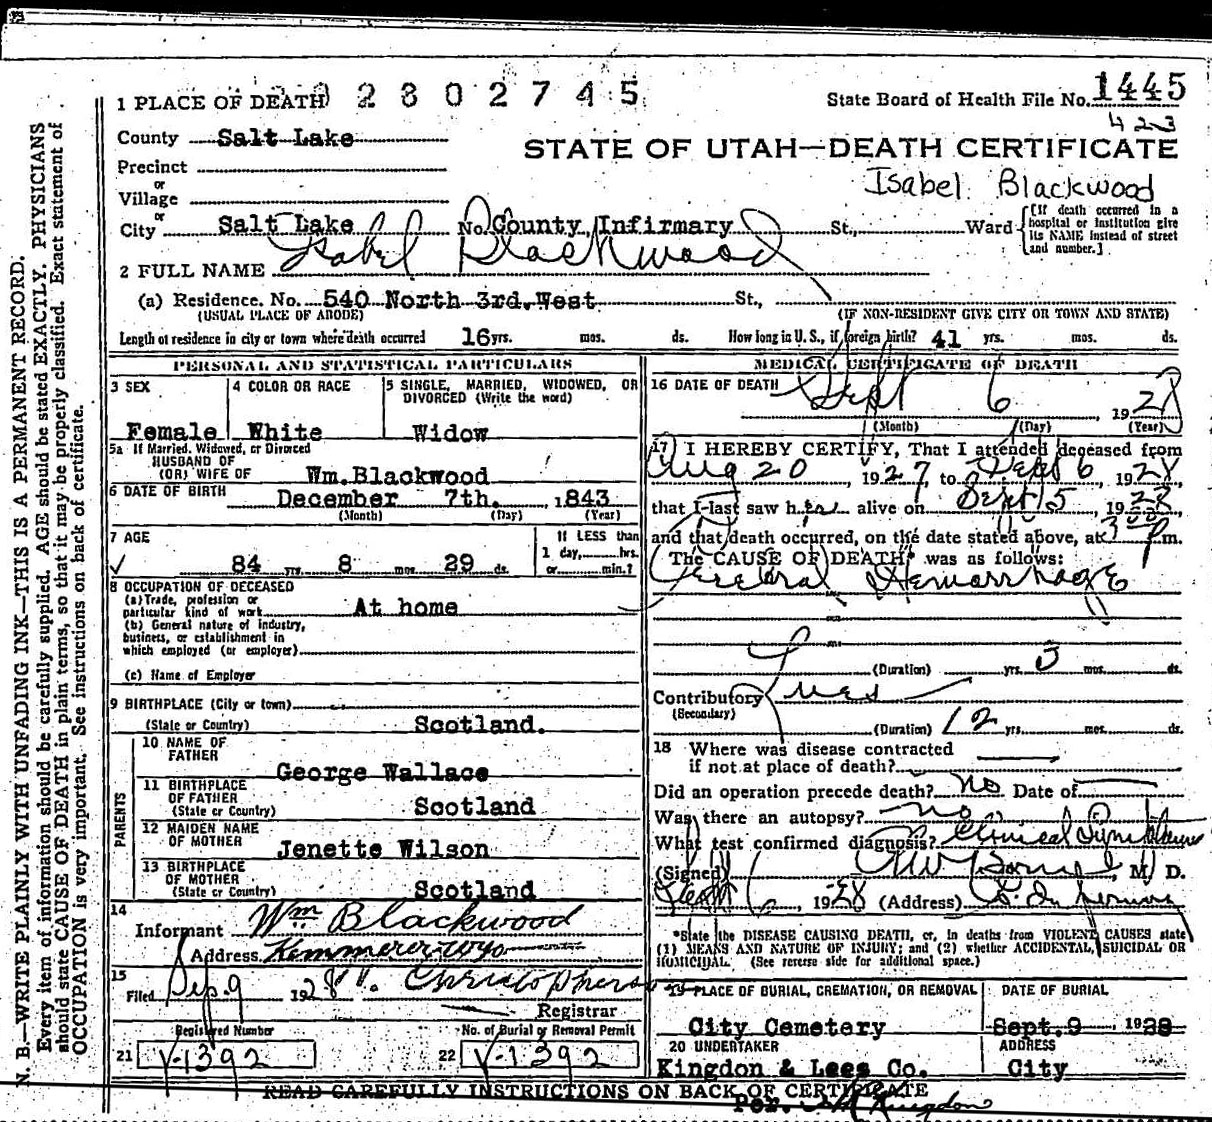 N. B.—WRITE PLAINLY WITH UNFADING INK—THIS IS A PERMANENT RECORD.
Every item of information should be carefully supplied. AGE should be stated EXACTLY. PHYSICIANS
should state CAUSE OF DEATH in plain terms, so that it may be properly classified. Exact statement of
OCCUPATION is very important. See Instructions on back of certificate.
1 PLACE OF DEATH 2802745
State Board of Health File No. 1445
423
County Salt Lake
STATE OF UTAH—DEATH CERTIFICATE
Precinct
Isabel Blackwood
or
Village
or
City Salt Lake No. County Infirmary St., Ward
[If death occurred in a
hospital or institution give
its NAME instead of street
and number.]
2 FULL NAME Isabel Blackwood
(a) Residence. No. 540 North 3rd. West St.,
(USUAL PLACE OF ABODE) (IF NON-RESIDENT GIVE CITY OR TOWN AND STATE)
Length of residence in city or town where death occurred 16 yrs. mos. ds. How long in U. S., if foreign birth? 41 yrs. mos. ds.
PERSONAL AND STATISTICAL PARTICULARS
3 SEX
Female
4 COLOR OR RACE
White
5 SINGLE, MARRIED, WIDOWED, OR
DIVORCED (Write the word)
Widow
5a If Married, Widowed, or Divorced
HUSBAND OF
(OR) WIFE OF Wm. Blackwood
6 DATE OF BIRTH December 7th. 1843
(Month) (Day) (Year)
7 AGE
84 yrs 8 mos 29 ds.
If LESS than
1 day, hrs.
or min.?
8 OCCUPATION OF DECEASED
(a) Trade, profession or
particular kind of work At home
(b) General nature of industry,
business, or establishment in
which employed (or employer)
(c) Name of Employer
9 BIRTHPLACE (City or town)
(State or Country) Scotland.
PARENTS
10 NAME OF
FATHER
George Wallace
11 BIRTHPLACE
OF FATHER
(State or Country) Scotland
12 MAIDEN NAME
OF MOTHER
Jenette Wilson
13 BIRTHPLACE
OF MOTHER
(State or Country) Scotland
14
Informant Wm. Blackwood
Address Kemmerer Wyo
15
Filed Sep. 9 1928
Registrar
Registered Number
No. of Burial or Removal Permit
21 V-1392
22 V-1392
MEDICAL CERTIFICATE OF DEATH
16 DATE OF DEATH Sept 6 1928
(Month) (Day) (Year)
17 I HEREBY CERTIFY, That I attended deceased from
Aug 20, 1927, to Sept 6, 1928,
that I last saw her alive on Sept 5, 1928,
and that death occurred, on the date stated above, at 3 p m.
The CAUSE OF DEATH* was as follows:
Cerebral Hemorrhage
(Duration) yrs. 3 mos. ds.
Contributory Lues
(Secondary)
(Duration) 12 yrs. mos. ds.
18 Where was disease contracted
if not at place of death?
Did an operation precede death? no Date of
Was there an autopsy? no
What test confirmed diagnosis? Clinical Symptoms
(Signed) M. D.
Sept 6, 1928 (Address)
*State the DISEASE CAUSING DEATH, or, in deaths from VIOLENT CAUSES state
(1) MEANS AND NATURE OF INJURY; and (2) whether ACCIDENTAL, SUICIDAL OR
HOMICIDAL. (See reverse side for additional space.)
19 PLACE OF BURIAL, CREMATION, OR REMOVAL
City Cemetery
DATE OF BURIAL
Sept. 9 1928
20 UNDERTAKER
Kingdon & Lees Co.
ADDRESS
City
READ CAREFULLY INSTRUCTIONS ON BACK OF CERTIFICATE
Per. Kingdon